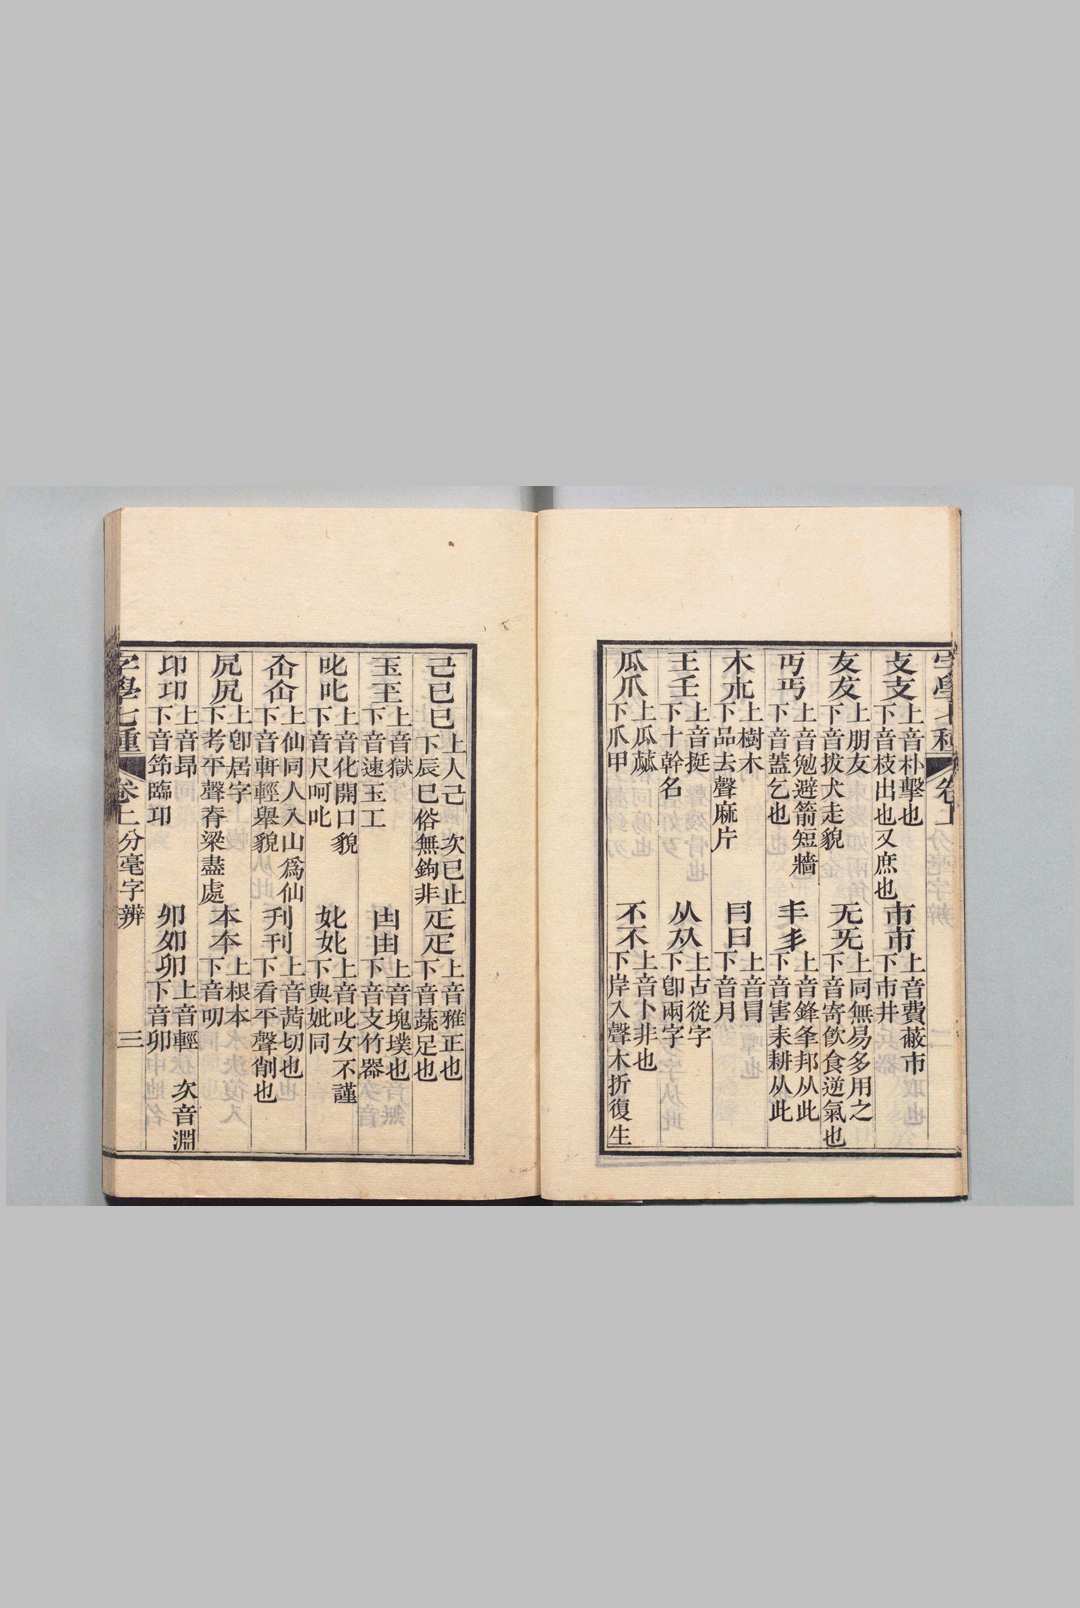 字學七種 卷上
攴支 上音朴擊也 下音枝出也又庶也 巿市 上音費蔽巿 下市井
友犮 上朋友 下音拔犬走貌 无旡 上同無易多用之 下音寄飮食逆氣也
丏丐 上音勉避箭短牆 下音蓋乞也 丰丯 上音鋒夆邦从此 下音害耒耕从此
木朩 上樹木 下品去聲麻片 冃曰 上音冒 下音月
𡈼壬 上音挺 下十幹名 从从 上古從字 下卽兩字
瓜爪 上瓜蓏 下爪甲 不不 上音卜非也 下岸入聲木折復生
己已巳 上人己 次已止 下辰巳俗無鉤非 疋疋 上音雅正也 下音蔬足也
玉玊 上音獄 下音速玉工 凷 上音塊墣也 下音支竹器
叱叱 上音化開口貌 下音尺呵叱 上音叱女不謹 下與妣同
仚 上仙同人入山爲仙 下音軒輕舉貌 刌刊 上音茜切也 下看平聲削也
凥尻 上卽居字 下考平聲脊梁盡處 本夲 上根本 下音叨
卬卭 上音昂 下音筇臨卭 卯夘卯 上音輕 次音淵 下音卯
字學七種 卷上 分毫字辨 三